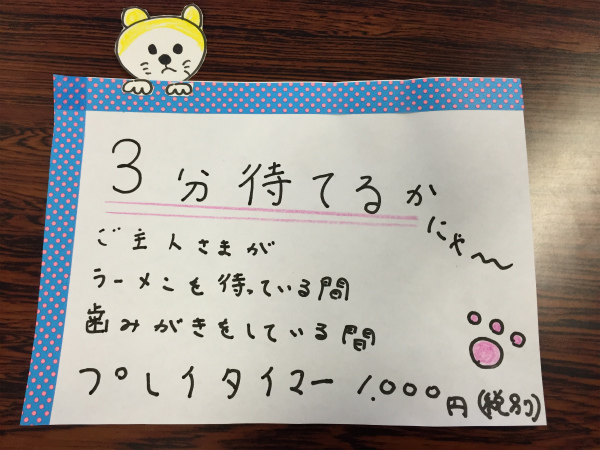 3分待てるか
にゃ〜
ご主人さまが
ラーメンを待っている間
歯みがきをしている間
プレイタイマー 1.000円(税別)